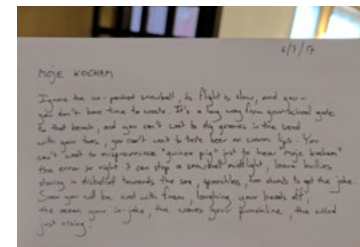 6/7/17
MOJE KOCHAM
Ignore the ice-packed snowball, its flight is slow, and you –
you don't have time to waste. It's a long way from your school gate
to that beach, and you can't wait to dig grooves in the sand
with your toes, you can't wait to taste beer on warm lips. You
can't wait to mispronounce "guinea pig" just to hear "moje kocham"
the error so right it can stop a snowball midflight, leave bullies
staring in disbelief towards the sea, speechless, too dumb to get the joke.
Soon you will be wet with foam, laughing your heads off,
the ocean your in-joke, the waves your punchline, the wind
just rising.